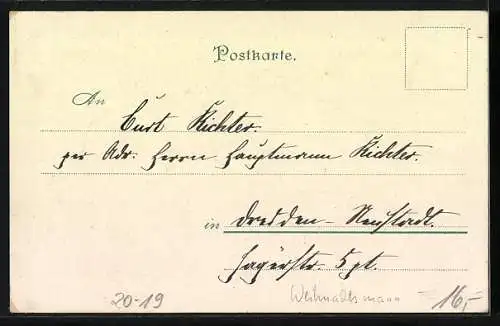 Postkarte.
An Curt Richter.
per Adr. Herrn Hauptmann Richter.
in Dresden-Neustadt.
Jägerstr. 5 pt.
20-19 Weihnachtsmann 16,-